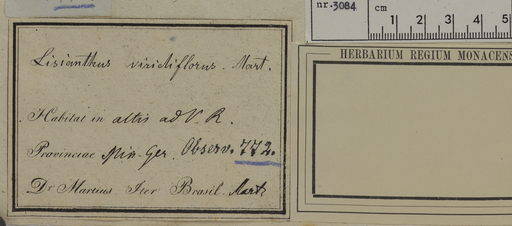 nr. 3084
cm 1 2 3 4 5
HERBARIUM REGIUM MONACENS
Lisianthus viridiflorus. Mart.
Habitat in altis ad V. R.
Provinciae Min. Ger. Observ. 772.
Dr Martius Iter Brasil. Mart